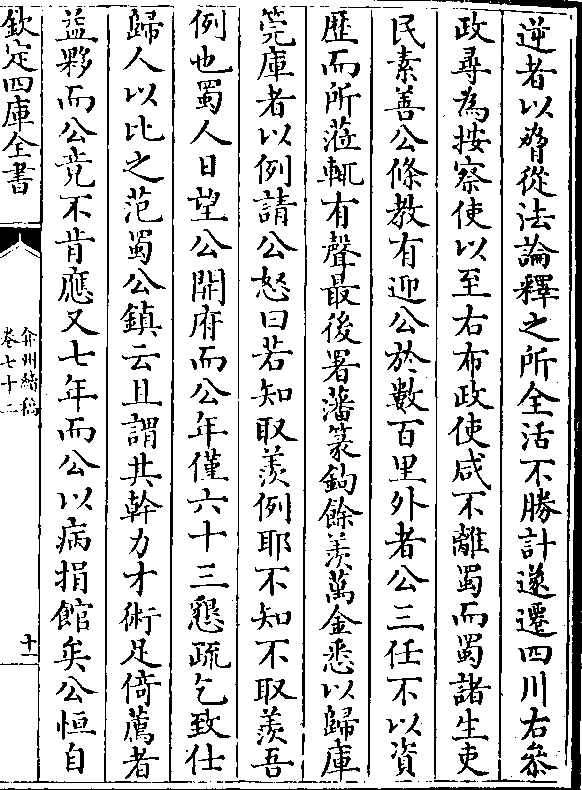 逆者以脅從法論釋之所全活不勝計遂遷四川右叅
政尋為按察使以至右布政使咸不離蜀而蜀諸生吏
民素善公條教有迎公於數百里外者公三任不以資
歴而所蒞輒有聲最後署藩篆鈎餘羨萬金悉以歸庫
筦庫者以例請公怒曰若知取羨例耶不知不取羨吾
例也蜀人日望公開府而公年僅六十三懇疏乞致仕
歸人以比之范蜀公鎮云且謂其幹力才術足倚薦者
益夥而公竟不肯應又七年而公以病捐館矣公恒自
欽定四庫全書
弇州續稿
卷七十二
十一